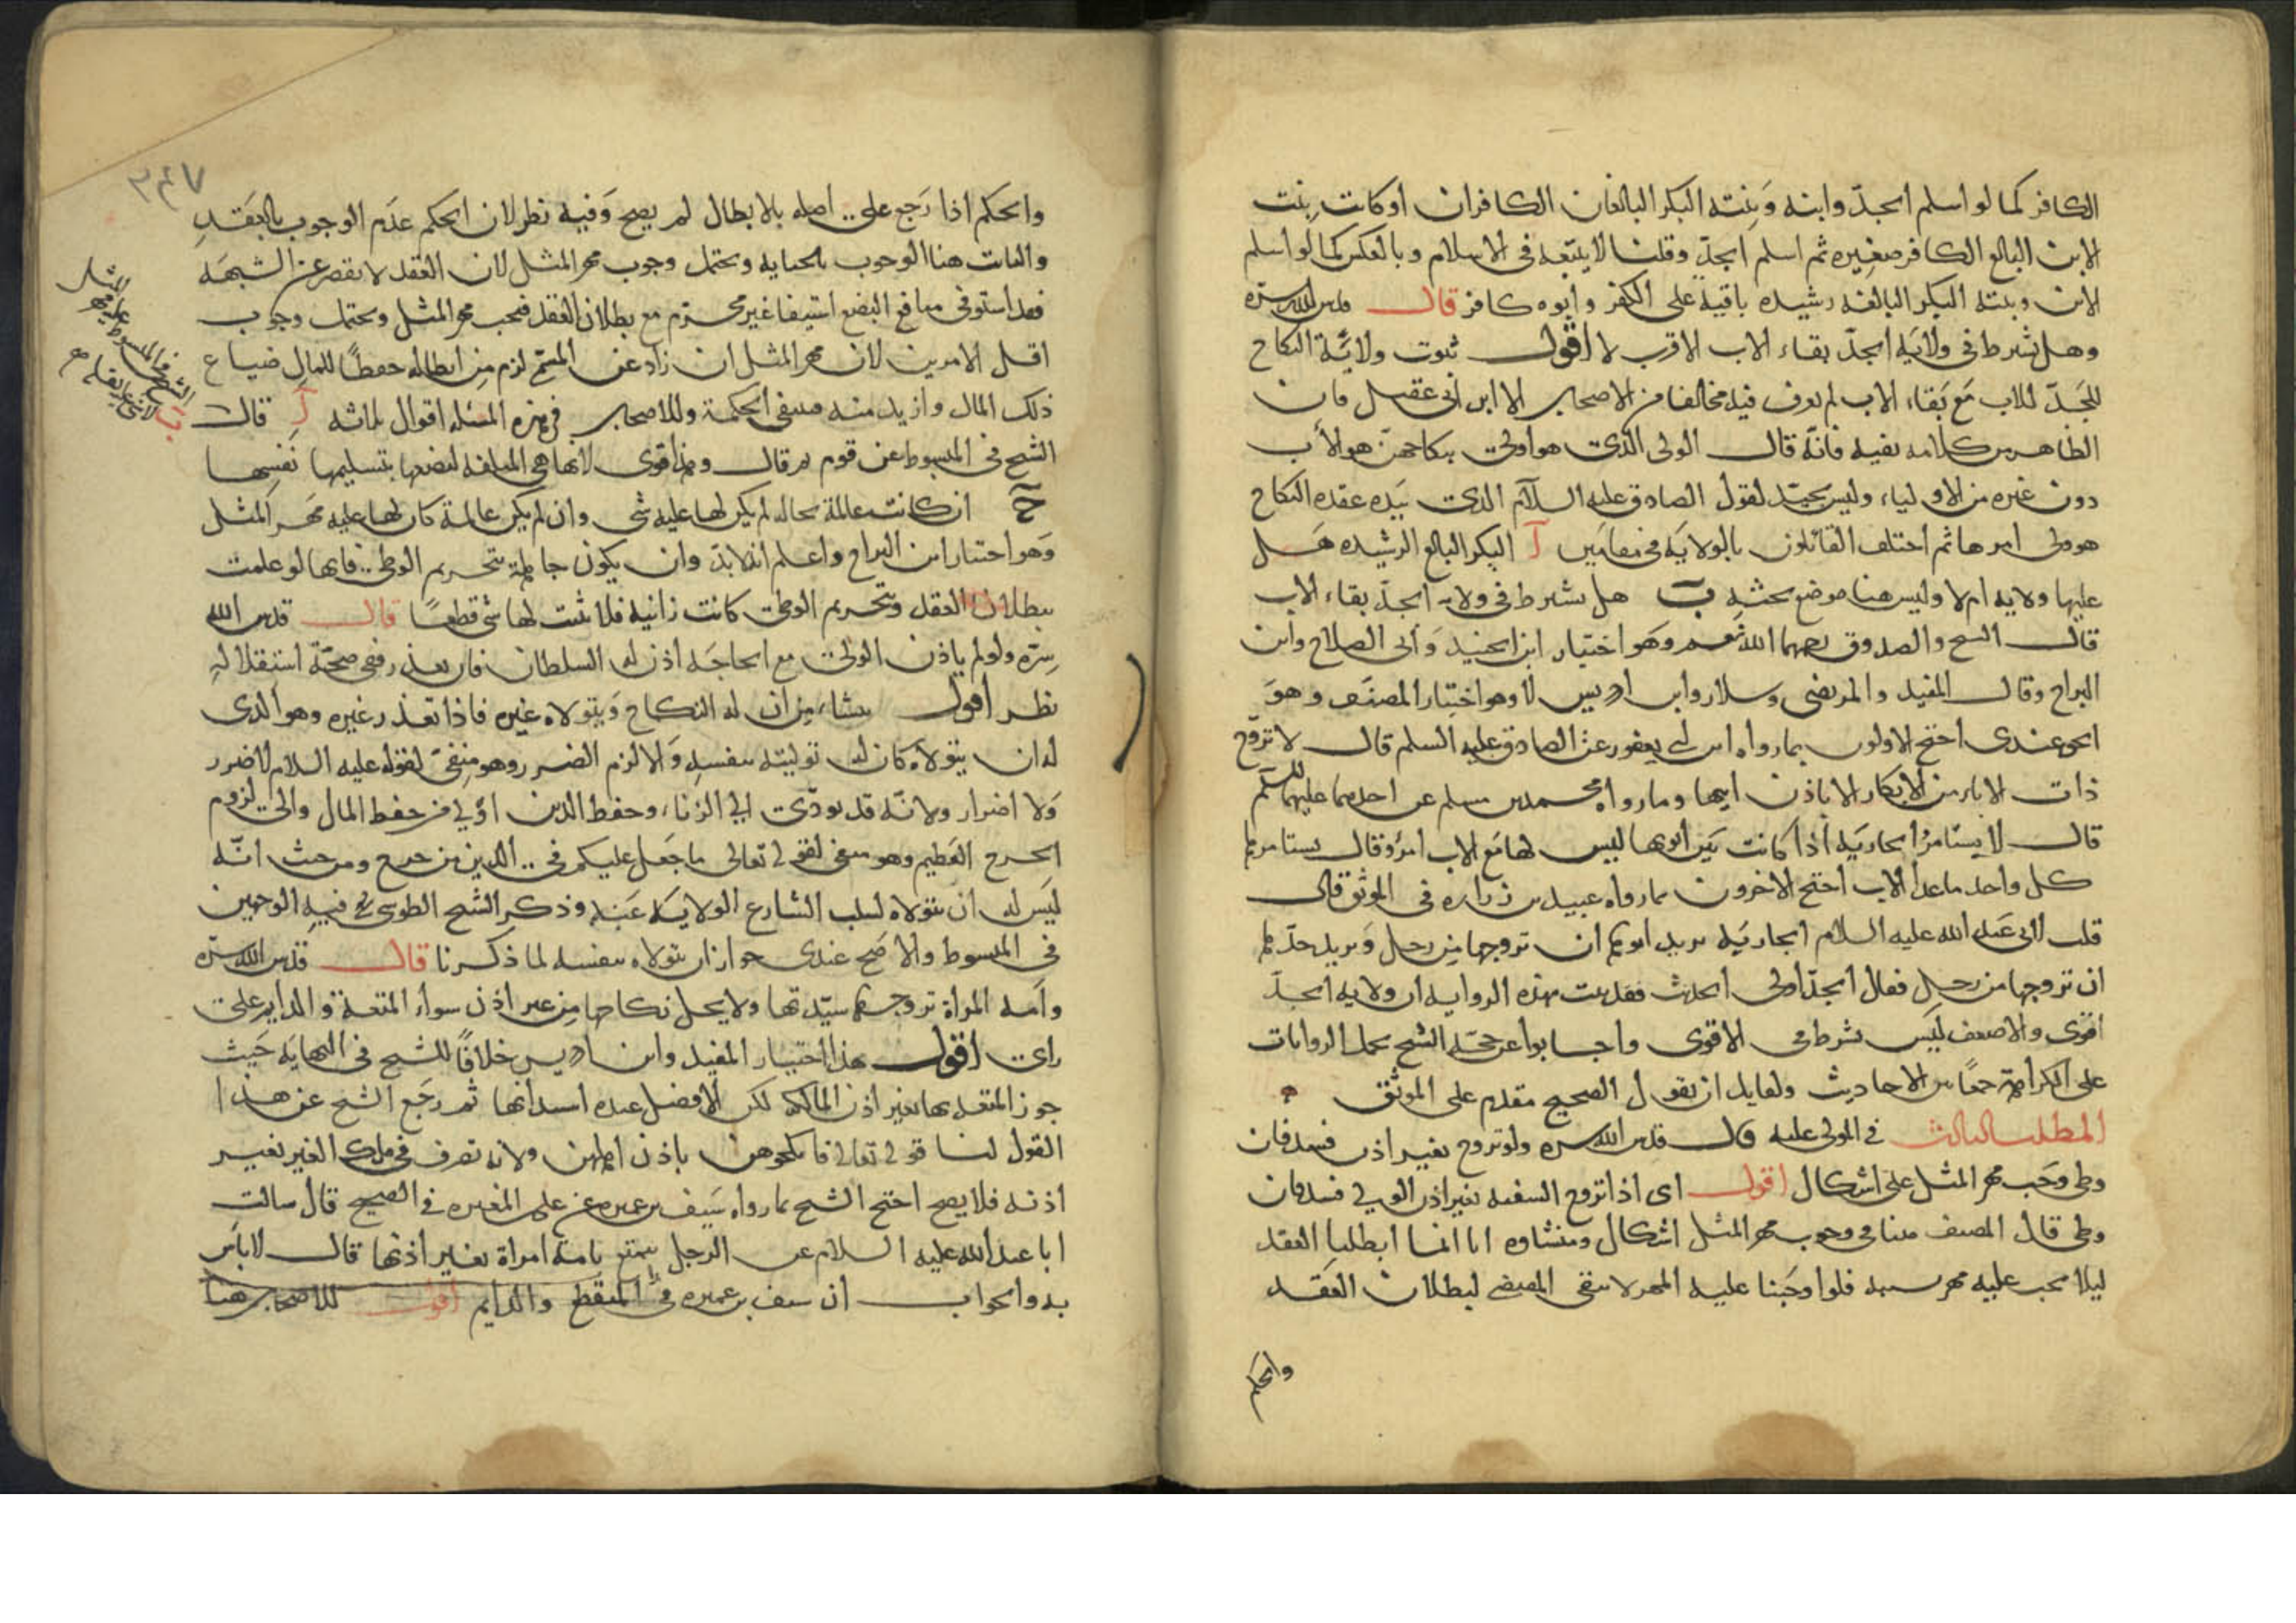 الكافر كما لو اسلم الجدّ وابنه وبنته البكر البالغان الكافران او كانت بنت
الابن البالغ الكافر صغيره ثم اسلم الجدّ وقلنا لا يتبعه فى الاسلام وبالعكس كما لو اسلم
الابن وبنته البكر البالغه رشيده باقية على الكفر وابوه كافر قال قدس الله سره
وهل يشترط فى ولاية الجدّ بقاء الاب الاقرب لا اقول ثبوت ولاية النكاح
للجدّ للاب مع بقاء الاب لم نعرف فيه مخالفا من الاصحاب الا ابن ابى عقيل فان
الظاهر من كلامه نفيه فانّه قال الولى الذى هو اولى بنكاحهن هو الاب
دون غيره من الاولياء وليس بجيّد لقول الصادق عليه السلام الذى بيده عقده النكاح
هو ولى امرها ثم اختلف القائلون بالولاية فى مقامين آ البكر البالغ الرشيده هل
عليها ولايه ام لا وليس هنا موضع بحثه ب هل يشترط فى ولاية الجدّ بقاء الاب
قال الشيخ والصدوق رحمهما الله نعم وهو اختيار ابن الجنيد وابى الصلاح وابن
البراج وقال المفيد والمرتضى وسلار وابن ادريس لا وهو اختيار المصنف وهو
الحق عندى احتج الاولون بما رواه ابن ابى يعفور عن الصادق عليه السلم قال لا تزوّج
ذات الاباء من الابكار الا باذن ابيها وما رواه محمد بن مسلم عن احدهما عليهما السلم
قال لا يستامر الجارية اذا كانت بين ابويها ليس لها مع الاب امر وقال يستامرها
كل واحد ما عدا الاب احتج الاخرون بما رواه عبيد بن زراره فى الموثق قال
قلت لابى عبد الله عليه السلام الجارية يريد ابوها ان تزوجها من رجل ويريد جدّها
ان تزوجها من رجل فقال الجدّ اولى الحديث فقد ثبت بهذه الروايه ان ولايه الجدّ
اقوى والاضعف ليس بشرط فى الاقوى واجابوا عن حجّة الشيخ بحمل الروايات
على الكراهة جمعًا بين الاحاديث ولقايل ان يقول الصحيح مقدم على الموثق
المطلب الثالث فى المولى عليه قال قدس الله سره ولو تزوج بغير اذن فسد فان
وطى وجب مهر المثل على اشكال اقول اى اذا تزوج السفيه بغير اذن الولى فسد فان
وطى قال المصنف هنا فى وجوب مهر المثل اشكال ومنشاوه انا انما ابطلنا العقد
ليلا يجب عليه مهر بسببه فلو اوجبنا عليه المهر لانتفى المقتضى لبطلان العقد
والحكم
٢٤٧
والحكم اذا رجع على اصله بالابطال لم يصح وفيه نظر لان الحكم عدم الوجوب بالعقد
والثابت هنا الوجوب بالجنايه ويحتمل وجوب مهر المثل لان العقد لا يقصر عن الشبهه
فقد استوفى منافع البضع استيفا غير محترم مع بطلان العقد فيجب مهر المثل ويحتمل وجوب
اقل الامرين لان مهر المثل ان زاد عن المسمّى لزم من ابطاله حفظًا للمال ضياع
ذلك المال وازيد منه فينتفى الحكمة وللاصحاب فى هذه المسئله اقوال ثلاثه آ قال
الشيخ فى المبسوط عن قوم ثم قال وهو اقوى لانها هى المتلفه لبضعها بتسليمها نفسها
ج ان كانت عالمة بحاله لم يكن لها عليه شى وان لم يكن عالمة كان لها عليه مهر المثل
وهو اختيار ابن البراج واعلم انه لا بدّ وان يكون جاهلة بتحريم الوطى فانها لو علمت
ببطلان العقد وتحريم الوطى كانت زانية فلا يثبت لها شى قطعًا قال قدس الله
سرّه ولو لم ياذن الولى مع الحاجه اذن له السلطان فان تعذر ففى صحّة استقلاله
نظر اقول ينشاء من ان له النكاح ويتولاه غيره فاذا تعذر غيره وهو الذى
له ان يتولاه كان له توليته بنفسه والا لزم الضرر وهو منفىّ لقوله عليه السلام لا ضرر
ولا اضرار ولانّه قد يودّى الى الزناء وحفظ الدين اولى من حفظ المال والى لزوم
الحرج العظيم وهو منفى لقوله تعالى ما جعل عليكم فى الدين من حرج ومن حيث انّه
ليس له ان يتولاه لسلب الشارع الولاية عنه وذكر الشيخ الطوسى فيه الوجهين
فى المبسوط والاصح عندى جواز ان يتولاه بنفسه لما ذكرنا قال قدس الله سره
وامة المراة تزوجها سيّدتها ولا يحل نكاحها من غير اذن سواء المتعة والدايم على
راى اقول هذا اختيار المفيد وابن ادريس خلافًا للشيخ فى النهايه حيث
جوز المتعه بها بغير اذن المالكه لكن الافضل عنده استيذانها ثم رجع الشيخ عن هذا
القول لنا قوله تعالى فانكحوهن باذن اهلهن ولانه تصرف فى ملك الغير بغير
اذنه فلا يصح احتج الشيخ بما رواه سيف بن عميره عن على بن المغيره فى الصحيح قال سالت
ابا عبد الله عليه السلام عن الرجل يتمتع بامة امراة بغير اذنها قال لا باس
به والجواب ان سيف بن عميره فى المنقطع والدايم اقول للاصحاب هنا